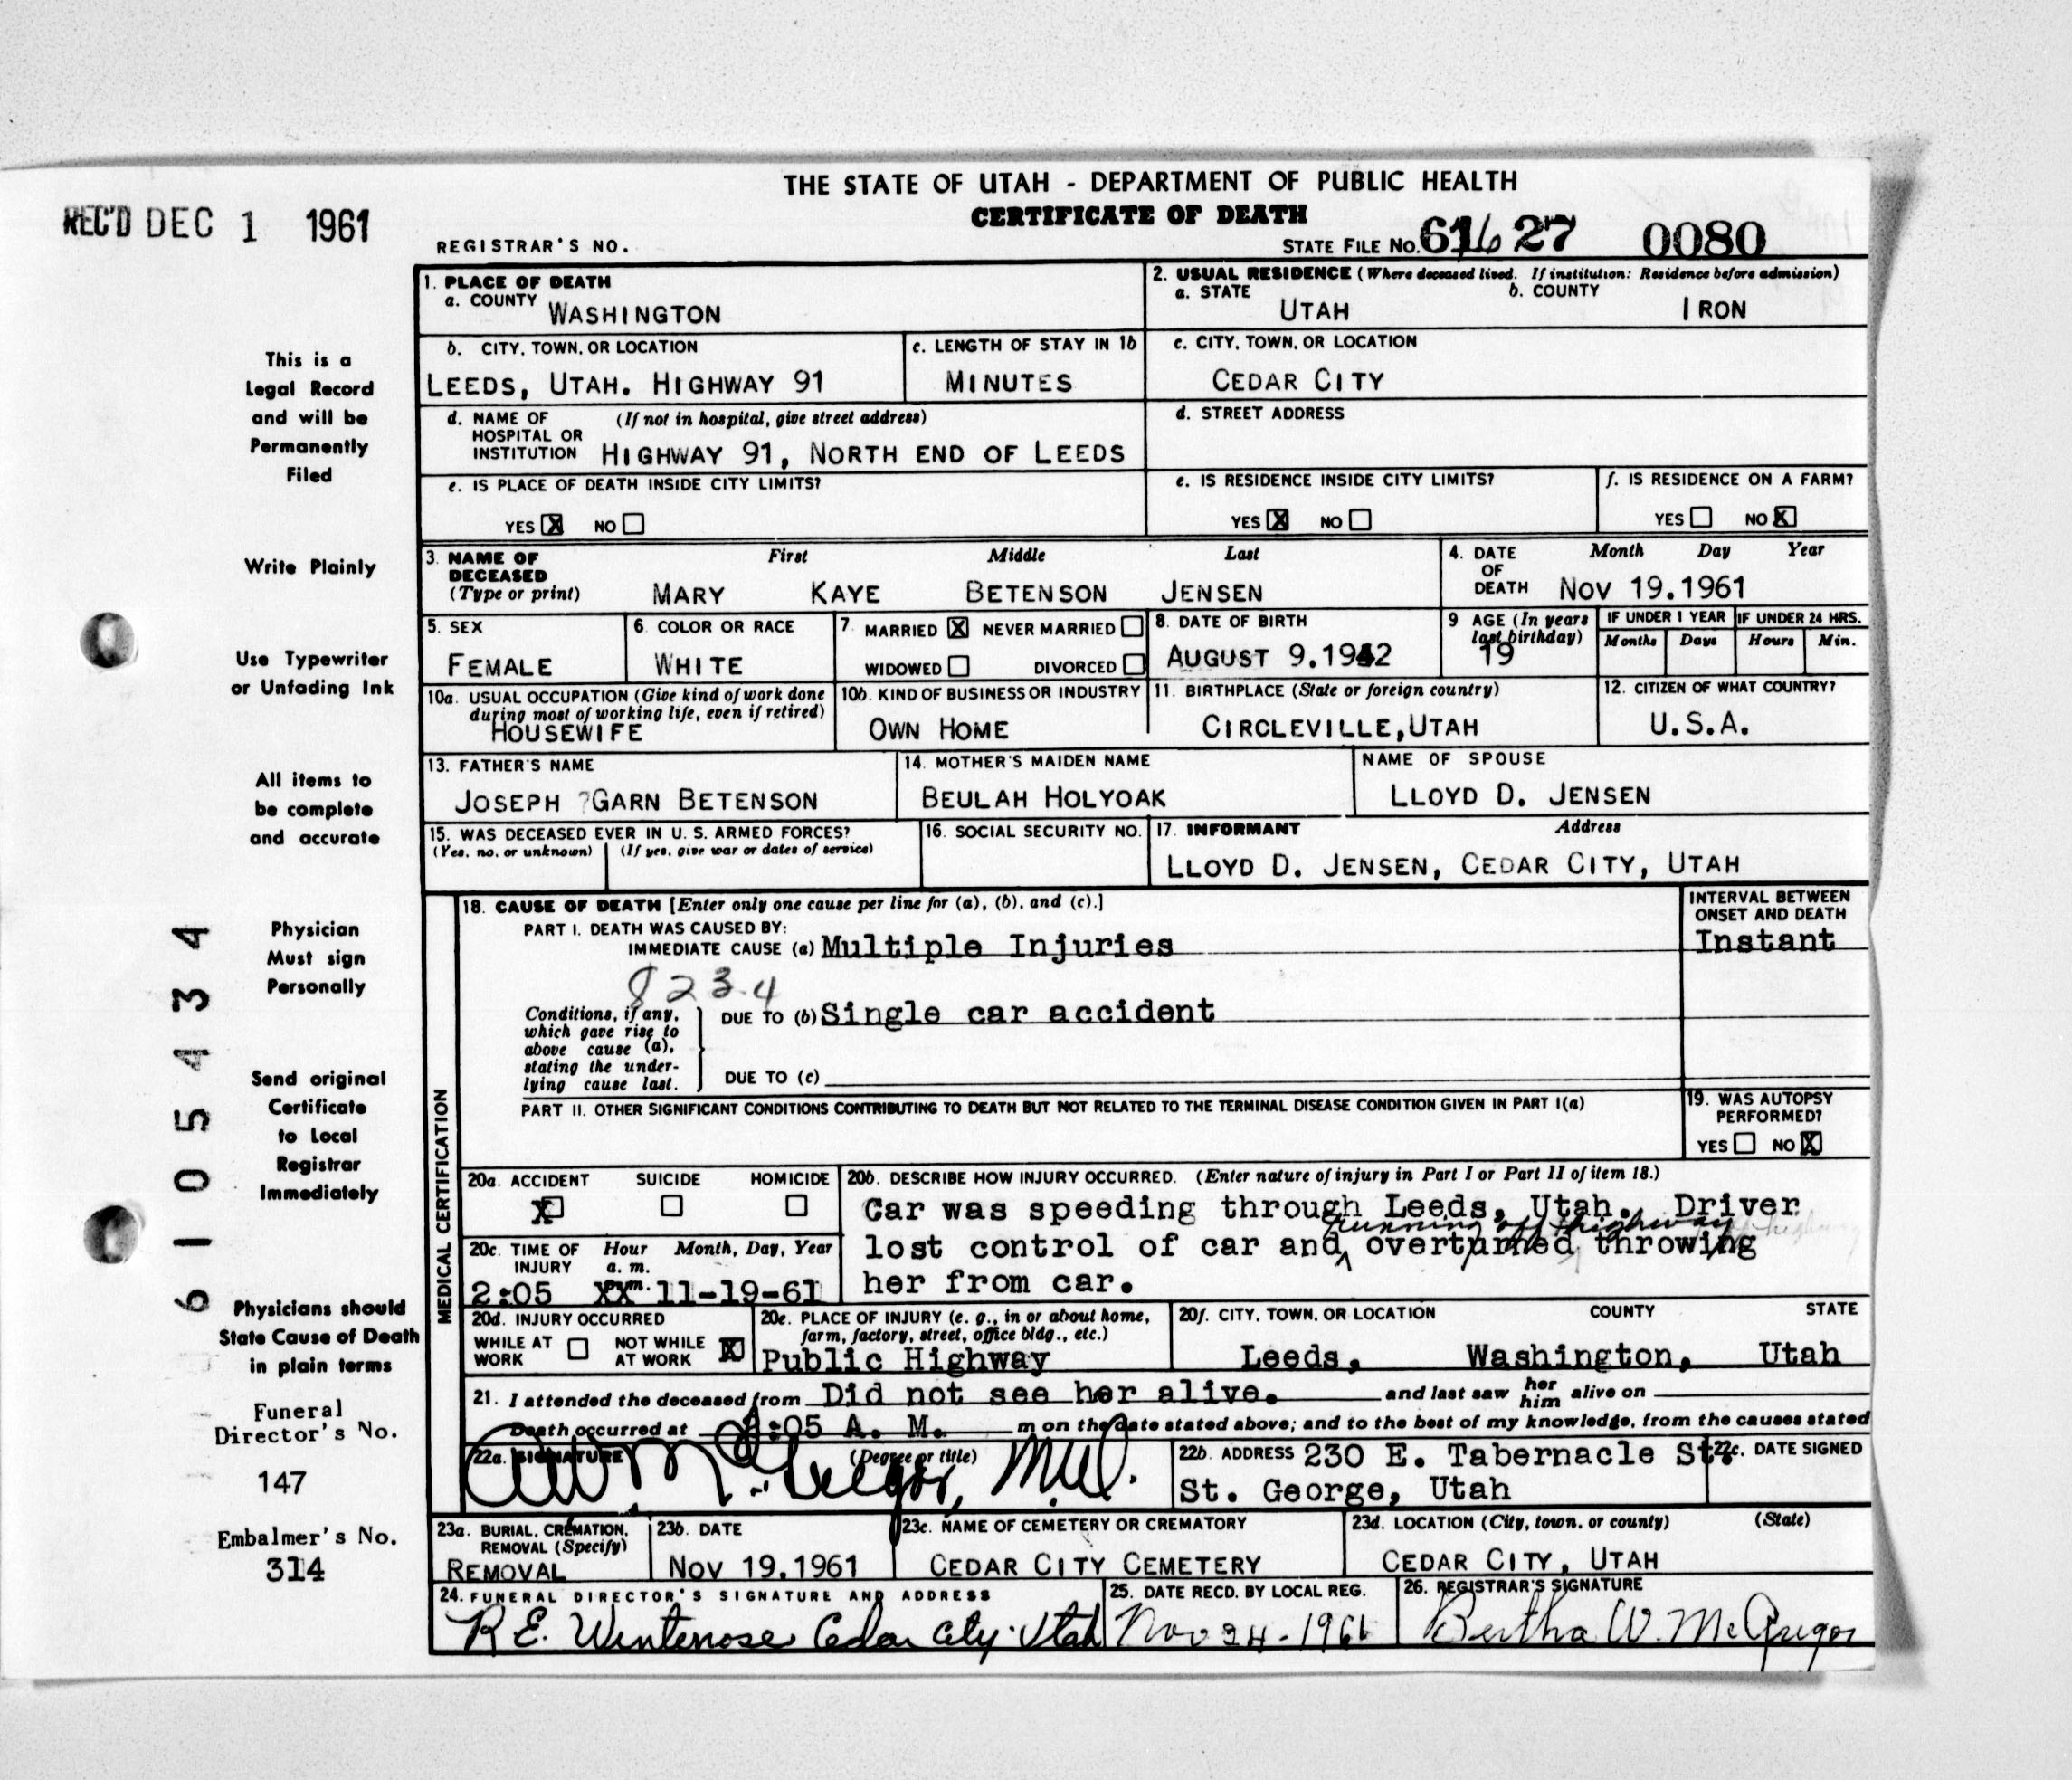 THE STATE OF UTAH - DEPARTMENT OF PUBLIC HEALTH
CERTIFICATE OF DEATH
REC'D DEC 1 1961
REGISTRAR'S NO.
STATE FILE NO. 61 16 27 0080
1. PLACE OF DEATH
a. COUNTY WASHINGTON
2. USUAL RESIDENCE (Where deceased lived. If institution: Residence before admission)
a. STATE UTAH b. COUNTY IRON
b. CITY, TOWN, OR LOCATION LEEDS, UTAH. HIGHWAY 91
c. LENGTH OF STAY IN 1b MINUTES
c. CITY, TOWN, OR LOCATION CEDAR CITY
d. NAME OF HOSPITAL OR INSTITUTION (If not in hospital, give street address) HIGHWAY 91, NORTH END OF LEEDS
d. STREET ADDRESS
e. IS PLACE OF DEATH INSIDE CITY LIMITS? YES X NO
e. IS RESIDENCE INSIDE CITY LIMITS? YES X NO
f. IS RESIDENCE ON A FARM? YES NO X
3. NAME OF DECEASED (Type or print) First Middle Last
MARY KAYE BETENSON JENSEN
4. DATE OF DEATH Month Day Year
NOV 19.1961
5. SEX FEMALE
6. COLOR OR RACE WHITE
7. MARRIED X NEVER MARRIED WIDOWED DIVORCED
8. DATE OF BIRTH AUGUST 9.1942
9 AGE (In years last birthday) 19
IF UNDER 1 YEAR Months Days
IF UNDER 24 HRS. Hours Min.
10a. USUAL OCCUPATION (Give kind of work done during most of working life, even if retired) HOUSEWIFE
10b. KIND OF BUSINESS OR INDUSTRY OWN HOME
11. BIRTHPLACE (State or foreign country) CIRCLEVILLE, UTAH
12. CITIZEN OF WHAT COUNTRY? U.S.A.
13. FATHER'S NAME JOSEPH ?GARN BETENSON
14. MOTHER'S MAIDEN NAME BEULAH HOLYOAK
NAME OF SPOUSE LLOYD D. JENSEN
15. WAS DECEASED EVER IN U. S. ARMED FORCES?
(Yes, no, or unknown) (If yes, give war or dates of service)
16. SOCIAL SECURITY NO.
17. INFORMANT Address
LLOYD D. JENSEN, CEDAR CITY, UTAH
MEDICAL CERTIFICATION
18. CAUSE OF DEATH [Enter only one cause per line for (a), (b), and (c).]
INTERVAL BETWEEN ONSET AND DEATH
PART I. DEATH WAS CAUSED BY:
IMMEDIATE CAUSE (a) Multiple Injuries Instant
823.4
Conditions, if any, which gave rise to above cause (a), stating the underlying cause last.
DUE TO (b) Single car accident
DUE TO (c)
PART II. OTHER SIGNIFICANT CONDITIONS CONTRIBUTING TO DEATH BUT NOT RELATED TO THE TERMINAL DISEASE CONDITION GIVEN IN PART I(a)
19. WAS AUTOPSY PERFORMED? YES NO X
20a. ACCIDENT X SUICIDE HOMICIDE
20b. DESCRIBE HOW INJURY OCCURRED. (Enter nature of injury in Part I or Part II of item 18.)
Car was speeding through Leeds, Utah. Driver
running off highway off highway
lost control of car and overturned throwing
her from car.
20c. TIME OF INJURY Hour Month, Day, Year
a. m.
2:05 XX m. 11-19-61
20d. INJURY OCCURRED
WHILE AT WORK NOT WHILE AT WORK X
20e. PLACE OF INJURY (e. g., in or about home, farm, factory, street, office bldg., etc.)
Public Highway
20f. CITY, TOWN, OR LOCATION COUNTY STATE
Leeds, Washington, Utah
21. I attended the deceased from Did not see her alive. and last saw her him alive on
Death occurred at 2:05 A. M. m on the date stated above; and to the best of my knowledge, from the causes stated
22a. SIGNATURE (Degree or title)
McGregor, M.D.
22b. ADDRESS 230 E. Tabernacle St.
St. George, Utah
22c. DATE SIGNED
23a. BURIAL, CREMATION, REMOVAL (Specify) REMOVAL
23b. DATE NOV 19.1961
23c. NAME OF CEMETERY OR CREMATORY CEDAR CITY CEMETERY
23d. LOCATION (City, town, or county) (State) CEDAR CITY, UTAH
24. FUNERAL DIRECTOR'S SIGNATURE AND ADDRESS
R E. Wintenose Cedar City Utah
25. DATE RECD. BY LOCAL REG.
Nov 24-1961
26. REGISTRAR'S SIGNATURE
Bertha W. McGregor
This is a
Legal Record
and will be
Permanently
Filed
Write Plainly
Use Typewriter
or Unfading Ink
All items to
be complete
and accurate
Physician
Must sign
Personally
Send original
Certificate
to Local
Registrar
Immediately
Physicians should
State Cause of Death
in plain terms
Funeral
Director's No.
147
Embalmer's No.
314
6105434